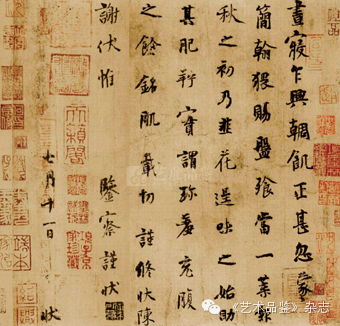 晝寢乍興輖飢正甚忽蒙
簡翰猥賜盤飧當一葉報
秋之初乃韭花逞味之始助
其肥羜實謂珍羞充腹
之餘銘肌載切謹修狀陳
謝伏惟 鑒察謹狀
七月十一日 狀
《艺术品鉴》杂志